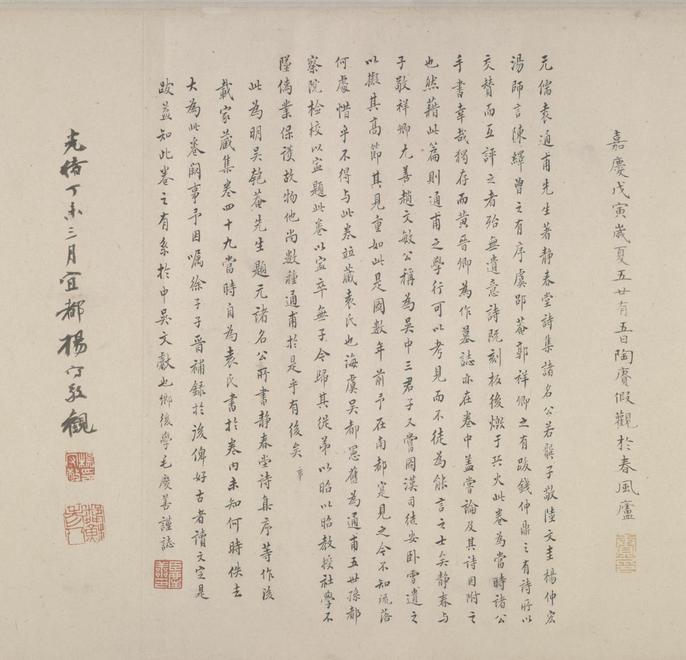 嘉慶戊寅歲夏五廿有五日陶賡假觀於春風廬
元儒袁通甫先生著靜春堂詩集諸名公若龔子敬陸文圭楊仲宏
湯師言陳繹曾之有序虞邵菴郭祥卿之有跋錢仲鼎之有詩所以
交贊而互評之者殆無遺意詩既刻板後燬于兵火此卷為當時諸公
手書幸哉獨存而黃晉卿為作墓誌亦在卷中蓋嘗論及其詩因附之
也然藉此篇則通甫之學行可以考見而不徒為能言之士矣靜春與
子敬祥卿尤善趙文敏公稱為吳中三君子又嘗圖漢司徒安卧雪遺之
以擬其高節其見重如此是圖數年前予在南都寔見之今不知流落
何處惜乎不得與此卷竝藏袁氏也海虞吳都憲舊為通甫五世孫都
察院檢校以寧題此卷以寧卒無子今歸其從弟以昭以昭教授社學不
隳儒業保護故物他尚數種通甫於是乎有後矣
此為明吳匏菴先生題元諸名公所書靜春堂詩集序等作後
載家藏集卷四十九當時自為袁氏書於卷內未知何時佚去
大為此卷闕事予因囑徐子子晉補錄於後俾好古者讀文定是
跋益知此卷之有系於中吳文獻也鄉後學毛慶善謹誌
光緒丁未三月宜都楊守敬觀